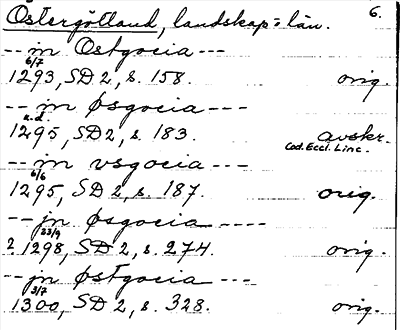 Östergötland, landskap = län. 6.
-- in Ostgocia ---
6/7
1293, SD 2, s. 158. orig.
-- in øsgocia ---
u.d.
1295, SD 2, s. 183. avskr.
Cod. Eccl. Linc.
-- in vsgocia ---
6/6
1295, SD 2, s. 187. orig.
-- jn øsgocia ----
23/9
? 1298, SD 2, s. 274. orig.
-- jn østgocia ---
3/7
1300, SD 2, s. 328. orig.